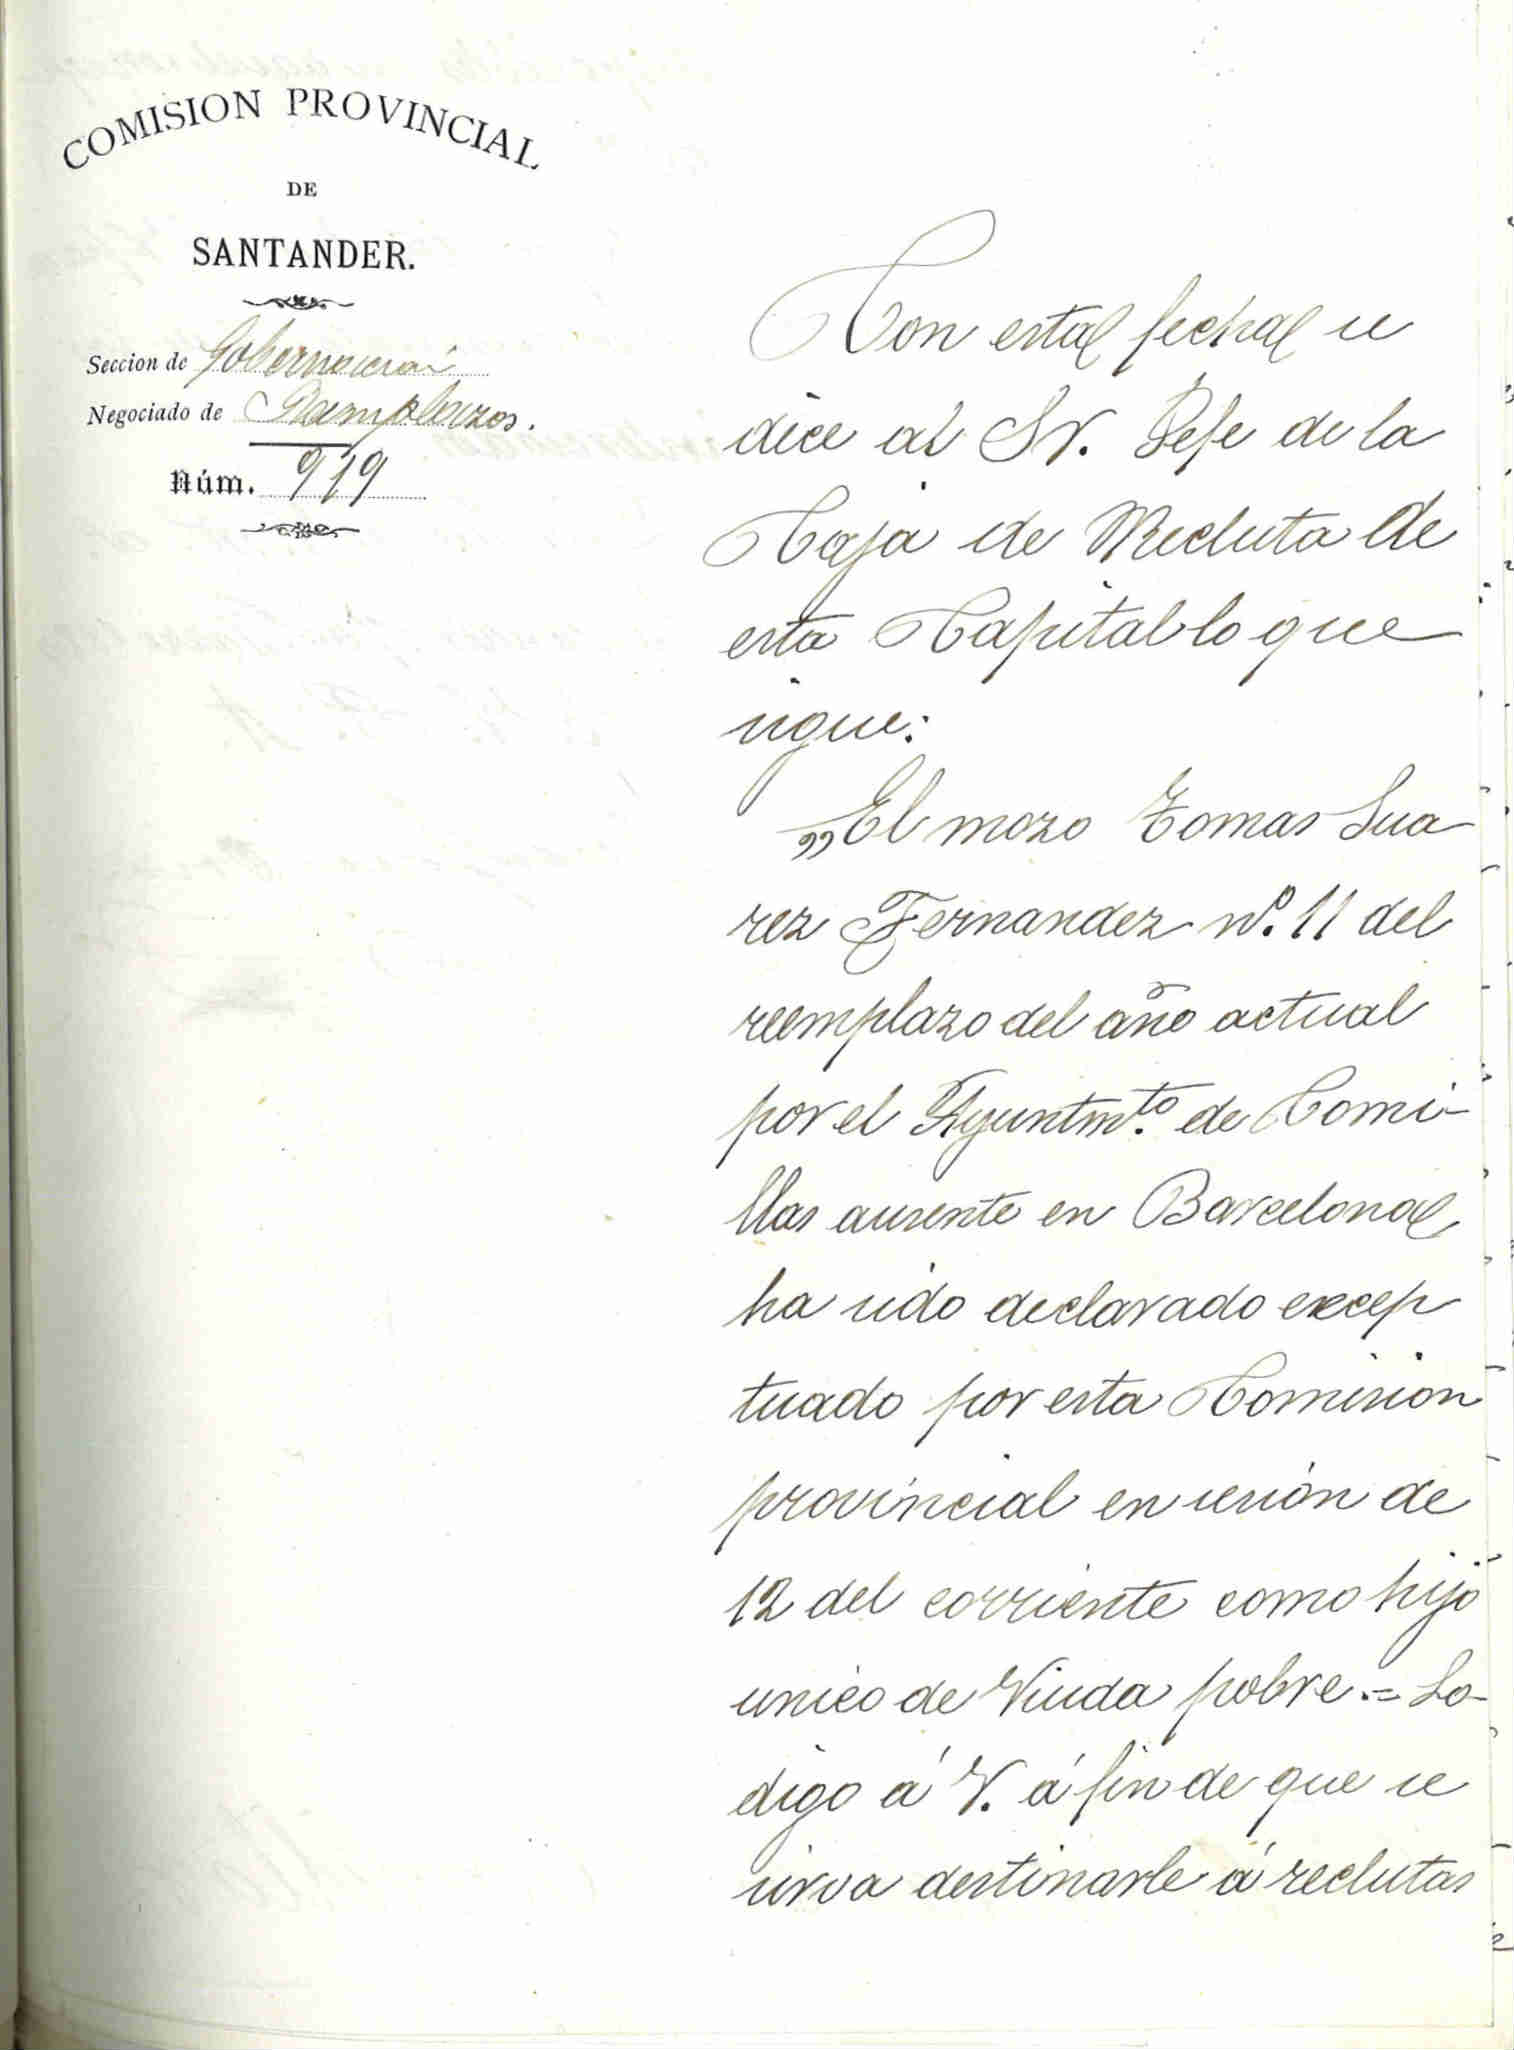 COMISION PROVINCIAL
DE
SANTANDER.
Seccion de Gobernacion
Negociado de Reemplazos.
Núm. 919
Con esta fecha se
dice al Sr. Jefe de la
Caja de Recluta de
esta Capital lo que
sigue:
"El mozo Tomas Sua
rez Fernandez nº. 11 del
reemplazo del año actual
por el Ayuntmto. de Comi-
llas ausente en Barcelona,
ha sido declarado excep
tuado por esta Comision
provincial en sesión de
12 del corriente como hijo
unico de Viuda pobre.= Lo-
digo á V. á fin de que se
sirva destinarle á reclutas